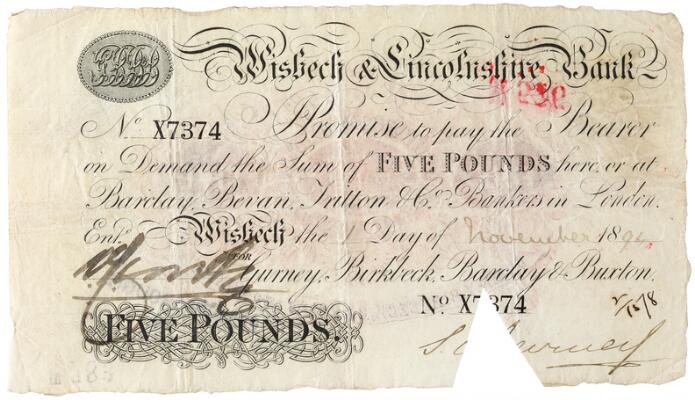 Wisbech & Lincolnshire Bank
No. X7374 I Promise to pay the Bearer
on Demand the Sum of FIVE POUNDS here, or at
Barclay, Bevan, Tritton & Co. Bankers in London.
Wisbech the 1 Day of November 1894
FOR
Gurney, Birkbeck, Barclay & Buxton.
No X7374
FIVE POUNDS.